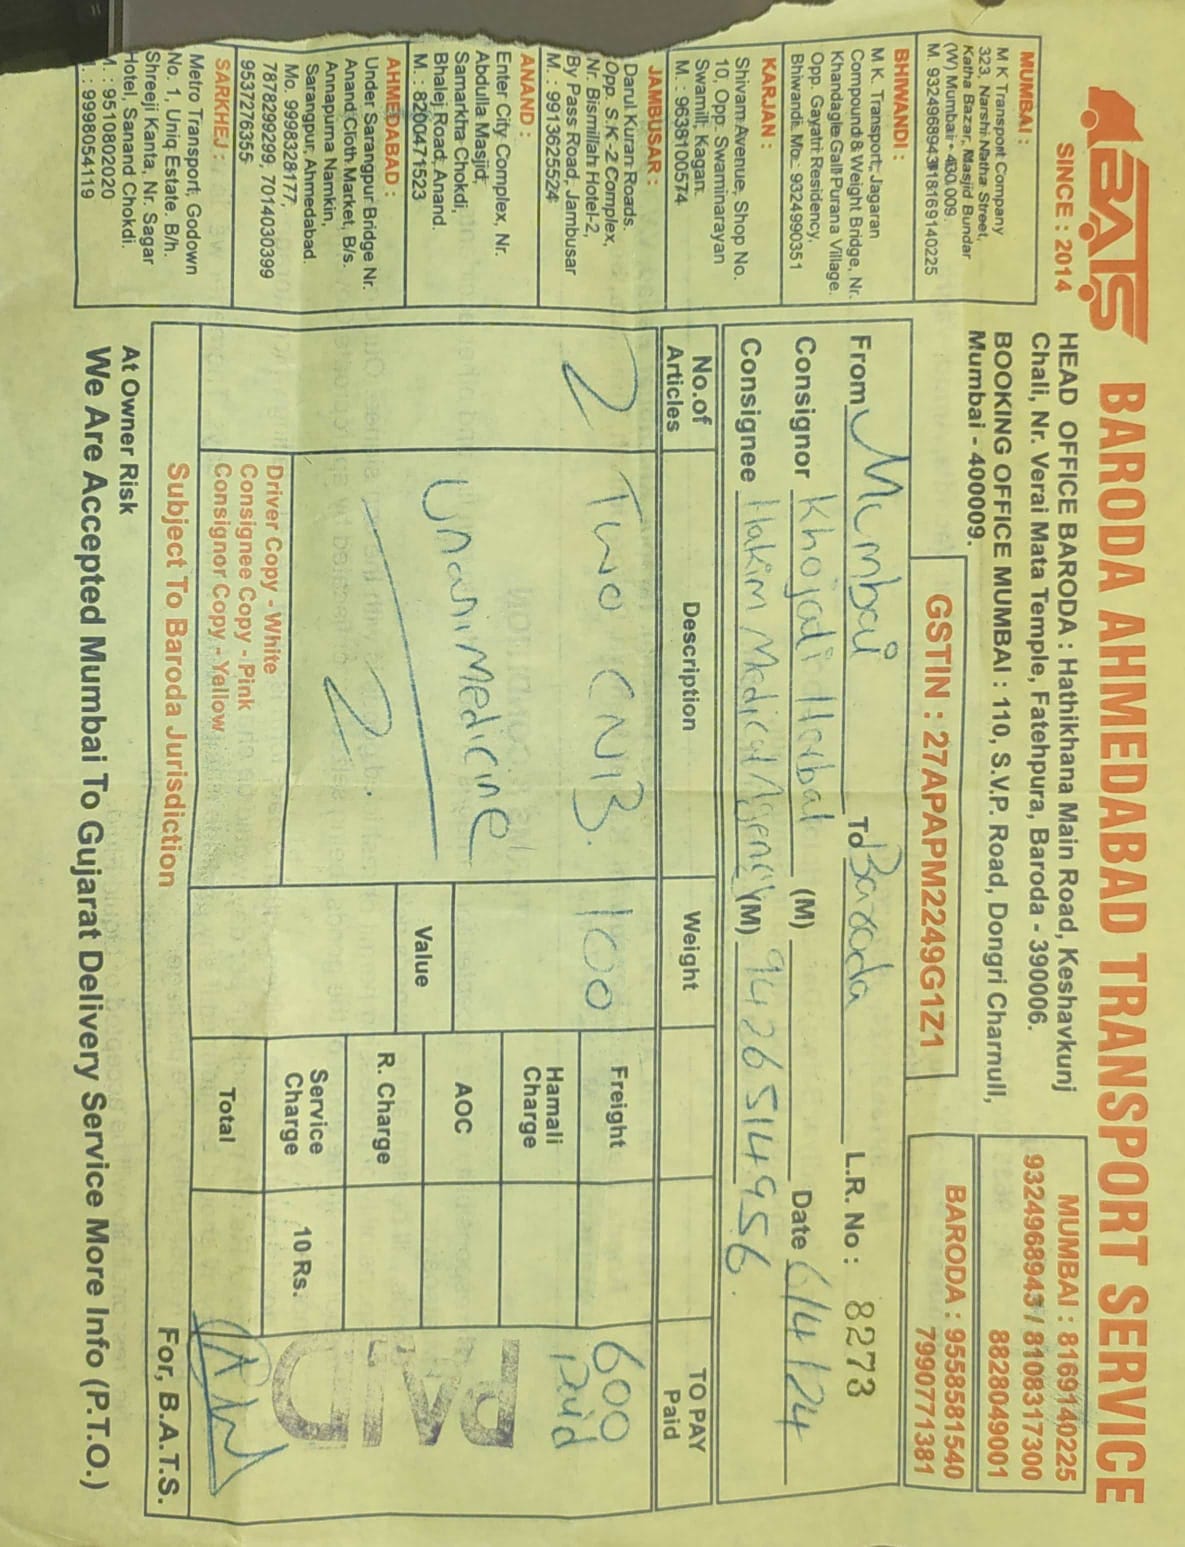 BATS
SINCE : 2014
BARODA AHMEDABAD TRANSPORT SERVICE
HEAD OFFICE BARODA : Hathikhana Main Road, Keshavkunj
Chali, Nr. Verai Mata Temple, Fatehpura, Baroda - 390006.
BOOKING OFFICE MUMBAI : 110, S.V.P. Road, Dongri Charnull,
Mumbai - 400009.
MUMBAI : 8169140225
9324968943 / 8108317300
8828049001
BARODA : 9558581540
7990771381
GSTIN : 27APAPM2249G1Z1
MUMBAI :
M K Transport Company
323, Narshi Natha Street,
Katha Bazar, Masjid Bundar
(W) Mumbai - 400 009.
M. 9324968943 / 8169140225
BHIWANDI :
M K. Transport, Jagaran
Compound & Weight Bridge, Nr.
Khandagle Gall Purana Village.
Opp. Gayatri Residency,
Bhiwandi. Mo.: 9324990351
KARJAN :
Shivam Avenue, Shop No.
10, Opp. Swaminarayan
Swamill, Kagan.
M. : 9638100574
JAMBUSAR :
Darul Kuran Roads.
Opp. S.K-2 Complex,
Nr. Bismillah Hotel-2,
By Pass Road, Jambusar
M. : 9913625524
ANAND :
Enter City Complex, Nr.
Abdulla Masjid,
Samarkha Chokdi,
Bhalej Road, Anand.
M. : 8200471523
AHMEDABAD :
Under Sarangpur Bridge Nr.
Anand Cloth Market, B/s.
Annapurna Namkin,
Sarangpur, Ahmedabad.
Mo. 9998328177,
7878299299, 7014030399
9537276355
SARKHEJ :
Metro Transport Godown
No. 1, Uniq Estate B/h.
Shreeji Kanta, Nr. Sagar
Hotel, Sanand Chokdi.
M. : 9510802020
: 9998054119
From Mumbai To Baroda L.R. No : 8273
Consignor Khojati Herbal (M) Date 6/4/24
Consignee Hakim Medical Agency (M) 9426514956
No.of Articles Description Weight TO PAY Paid
2 Two CNB. 100 Freight 600
Paid
Hamali Charge
Unani Medicine AOC
Value R. Charge
2
Service Charge 10 Rs.
PAID
Total
Driver Copy - White
Consignee Copy - Pink
Consignor Copy - Yellow
Subject To Baroda Jurisdiction For, B.A.T.S.
At Owner Risk
We Are Accepted Mumbai To Gujarat Delivery Service More Info (P.T.O.)